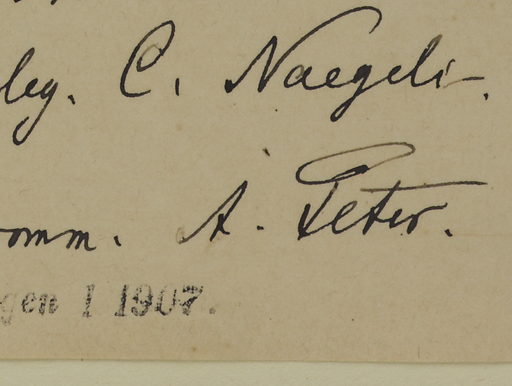 leg. C. Naegeli.
comm. A. Peter.
gen 1 1907.